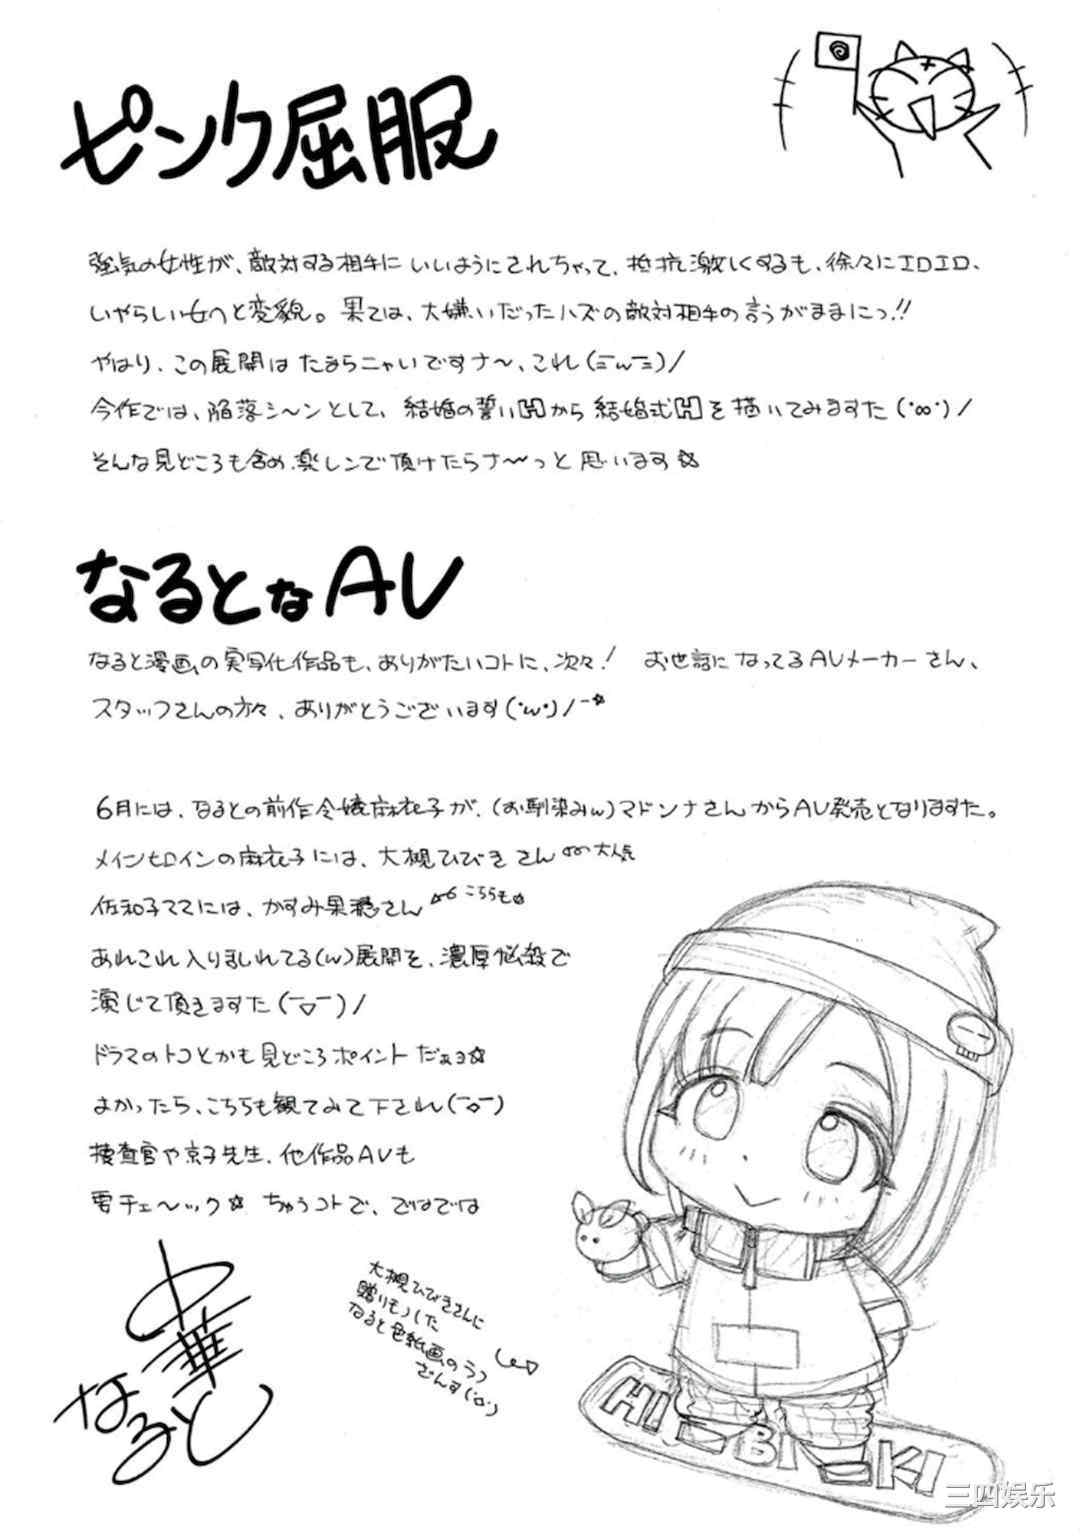 ピンク屈服
強気の女性が、敵対する相手にいいようにされちゃって、抵抗激しくするも、徐々にエロエロ、
いやらしい女へと変貌。果ては、大嫌いだったハズの敵対相手の言うがままにっ!!
やはり、この展開はたまらニャいですナ〜、これ(ΞwΞ)/
今作では、陥落シ〜ンとして、結婚の誓いHから結婚式Hを描いてみますた(・∞・)/
そんな見どころも含め、楽しンで頂けたらナ〜っと思います☆
なるとなAV
なると漫画の実写化作品も、ありがたいコトに、次々! お世話になってるAVメーカーさん、
スタッフさんの方々、ありがとうございます(・w・)/-☆
6月には、なるとの前作令嬢麻衣子が、(お馴染みw)マドンナさんからAV発売となりますた。
メインヒロインの麻衣子には、大槻ひびきさん 大人気
佐和子ママには、かすみ果穂さん こちらも☆
あれこれ入りましれてる(w)展開を、濃厚悩殺で
演じて頂きますた(￣▽￣)/
ドラマのトコとかも見どころポイントだぁョ☆
よかったら、こちらも観てみて下され(￣▽￣)
捜査官や京子先生、他作品AVも
要チェ〜ック☆ ちゅうコトで、ではでは
中華
なると
大槻ひびきさんに
贈りもノした
なると色紙画のラフ
ざんす(・ω・)
HIBIKI
三四娱乐